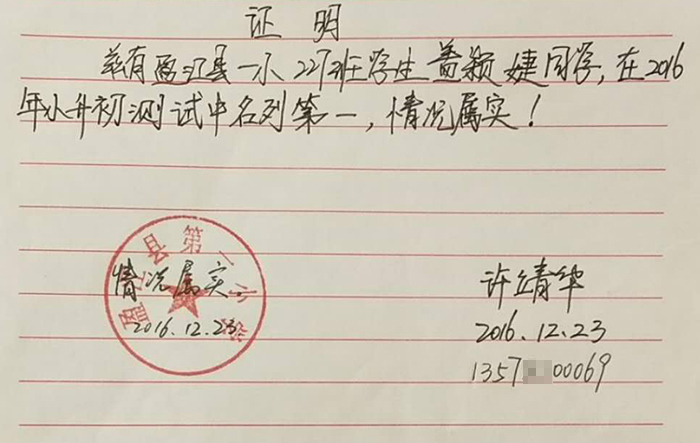 证明
兹有盈江县一小227班学生黄颖婕同学,在2016
年小升初测试中名列第一,情况属实!
盈江县第一小学
情况属实
2016.12.23
许靖华
2016.12.23
1357 00069